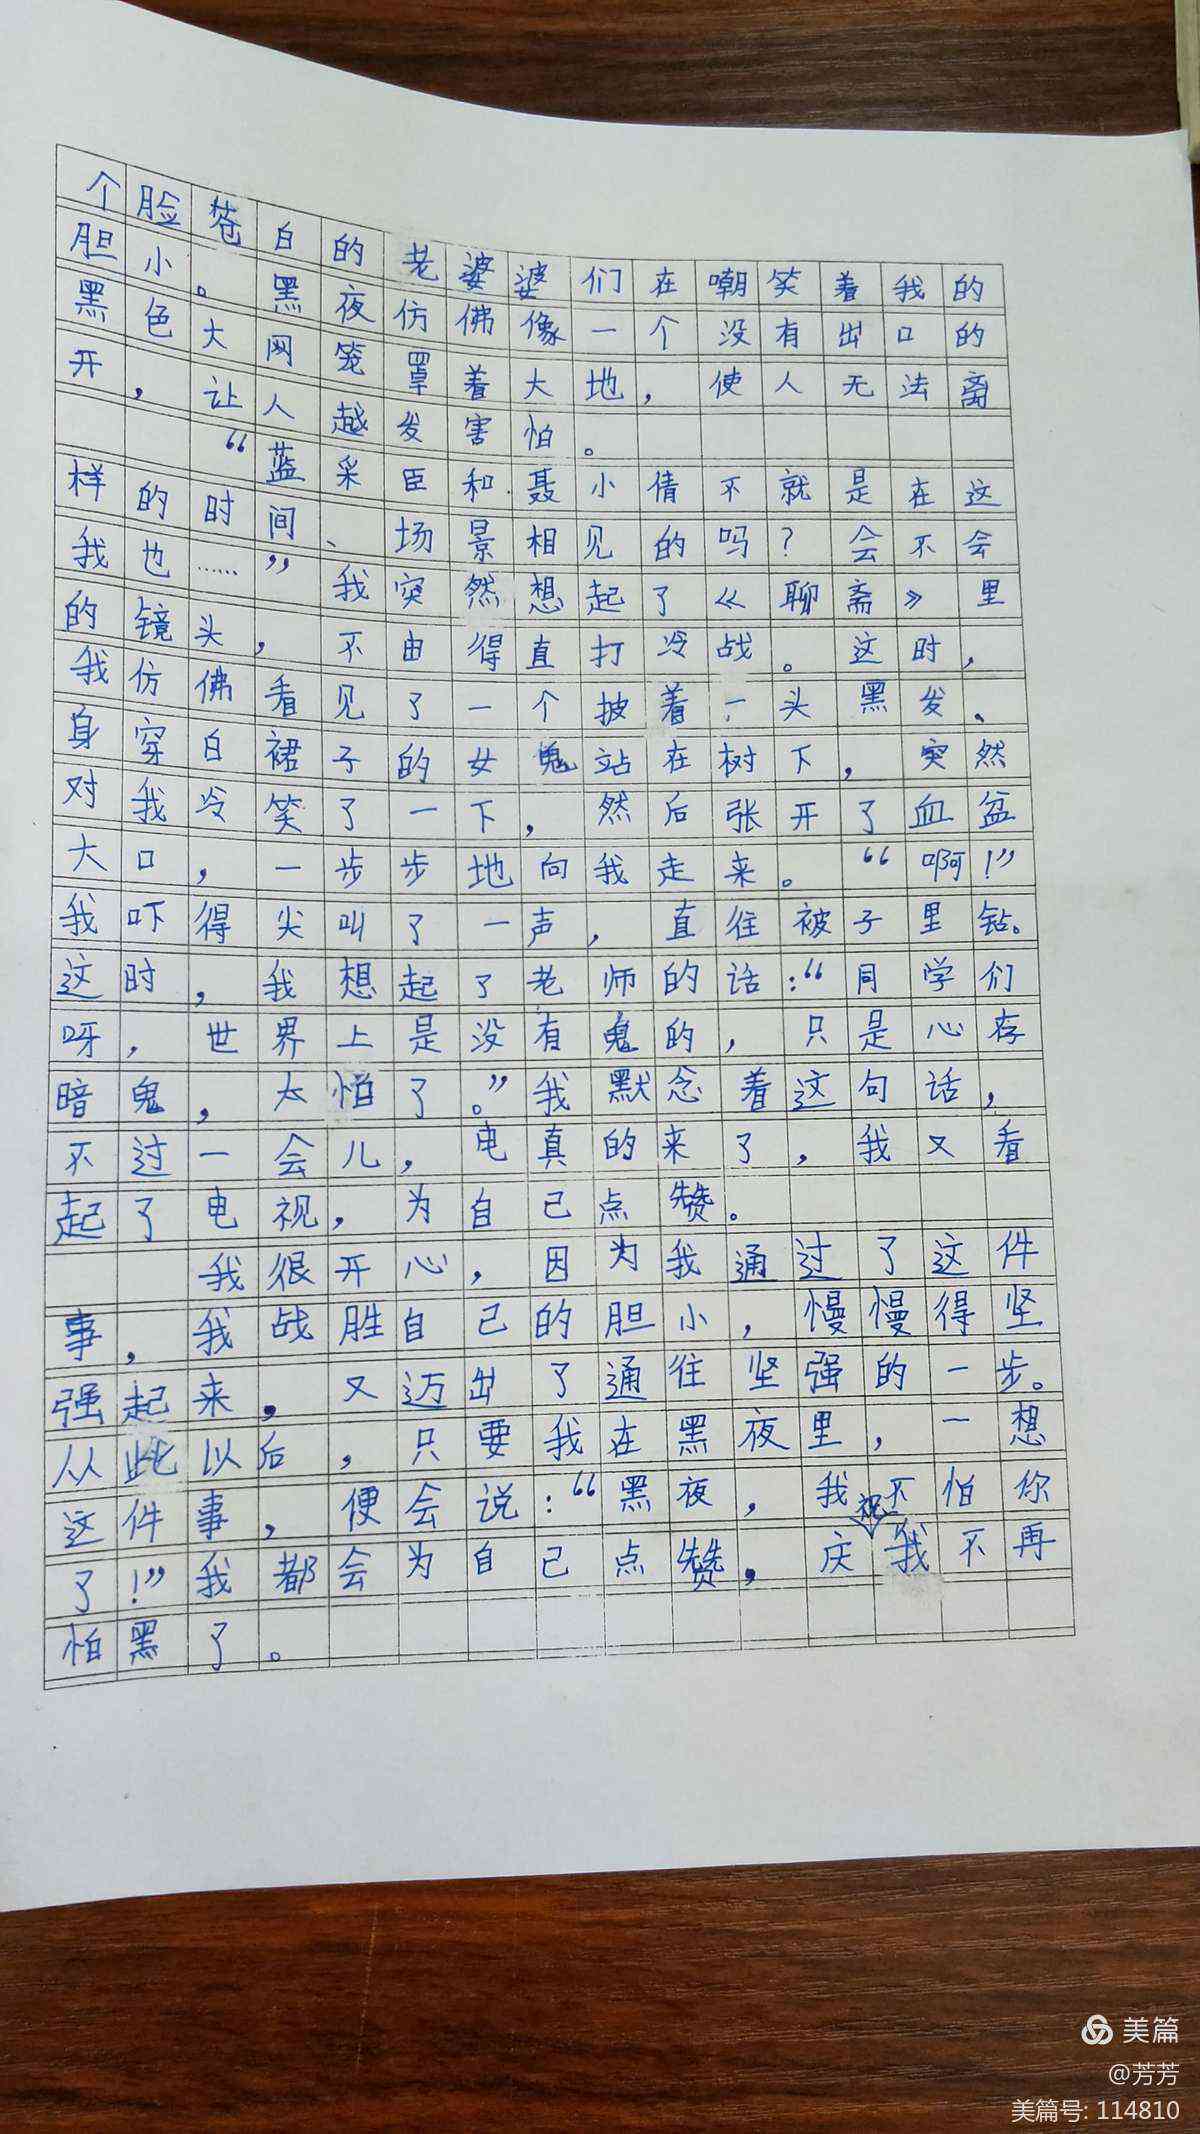 个脸苍白的老婆婆们在嘲笑着我的
胆小。黑夜仿佛像一个没有出口的
黑色大网笼罩着大地，使人无法离
开，让人越发害怕。
“蓝采臣和聂小倩不就是在这
样的时间、场景相见的吗？会不会
我也……”我突然想起了《聊斋》里
的镜头，不由得直打冷战。这时，
我仿佛看见了一个披着一头黑发、
身穿白裙子的女鬼站在树下，突然
对我冷笑了一下，然后张开了血盆
大口，一步步地向我走来。“啊！”
我吓得尖叫了一声，直往被子里钻。
这时，我想起了老师的话：“同学们
呀，世界上是没有鬼的，只是心存
暗鬼，太怕了。”我默念着这句话，
不过一会儿，电真的来了，我又看
起了电视，为自己点赞。
我很开心，因为我通过了这件
事，我战胜自己的胆小，慢慢得坚
强起来，又迈出了通往坚强的一步。
从此以后，只要我在黑夜里，一想
这件事，便会说：“黑夜，我不怕你
了！”我都会为自己点赞，庆祝我不再
怕黑了。
美篇
@芳芳
美篇号: 114810